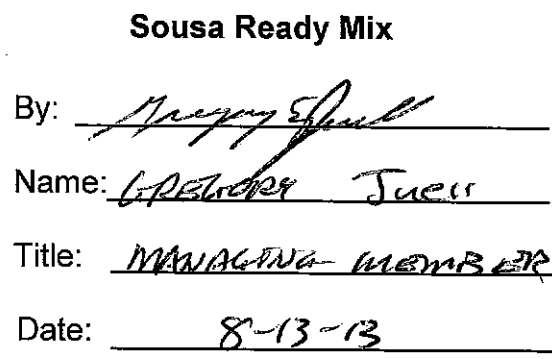 Sousa Ready Mix
By: Gregory E Juell
Name: GREGORY Juell
Title: MANAGING MEMBER
Date: 8-13-13